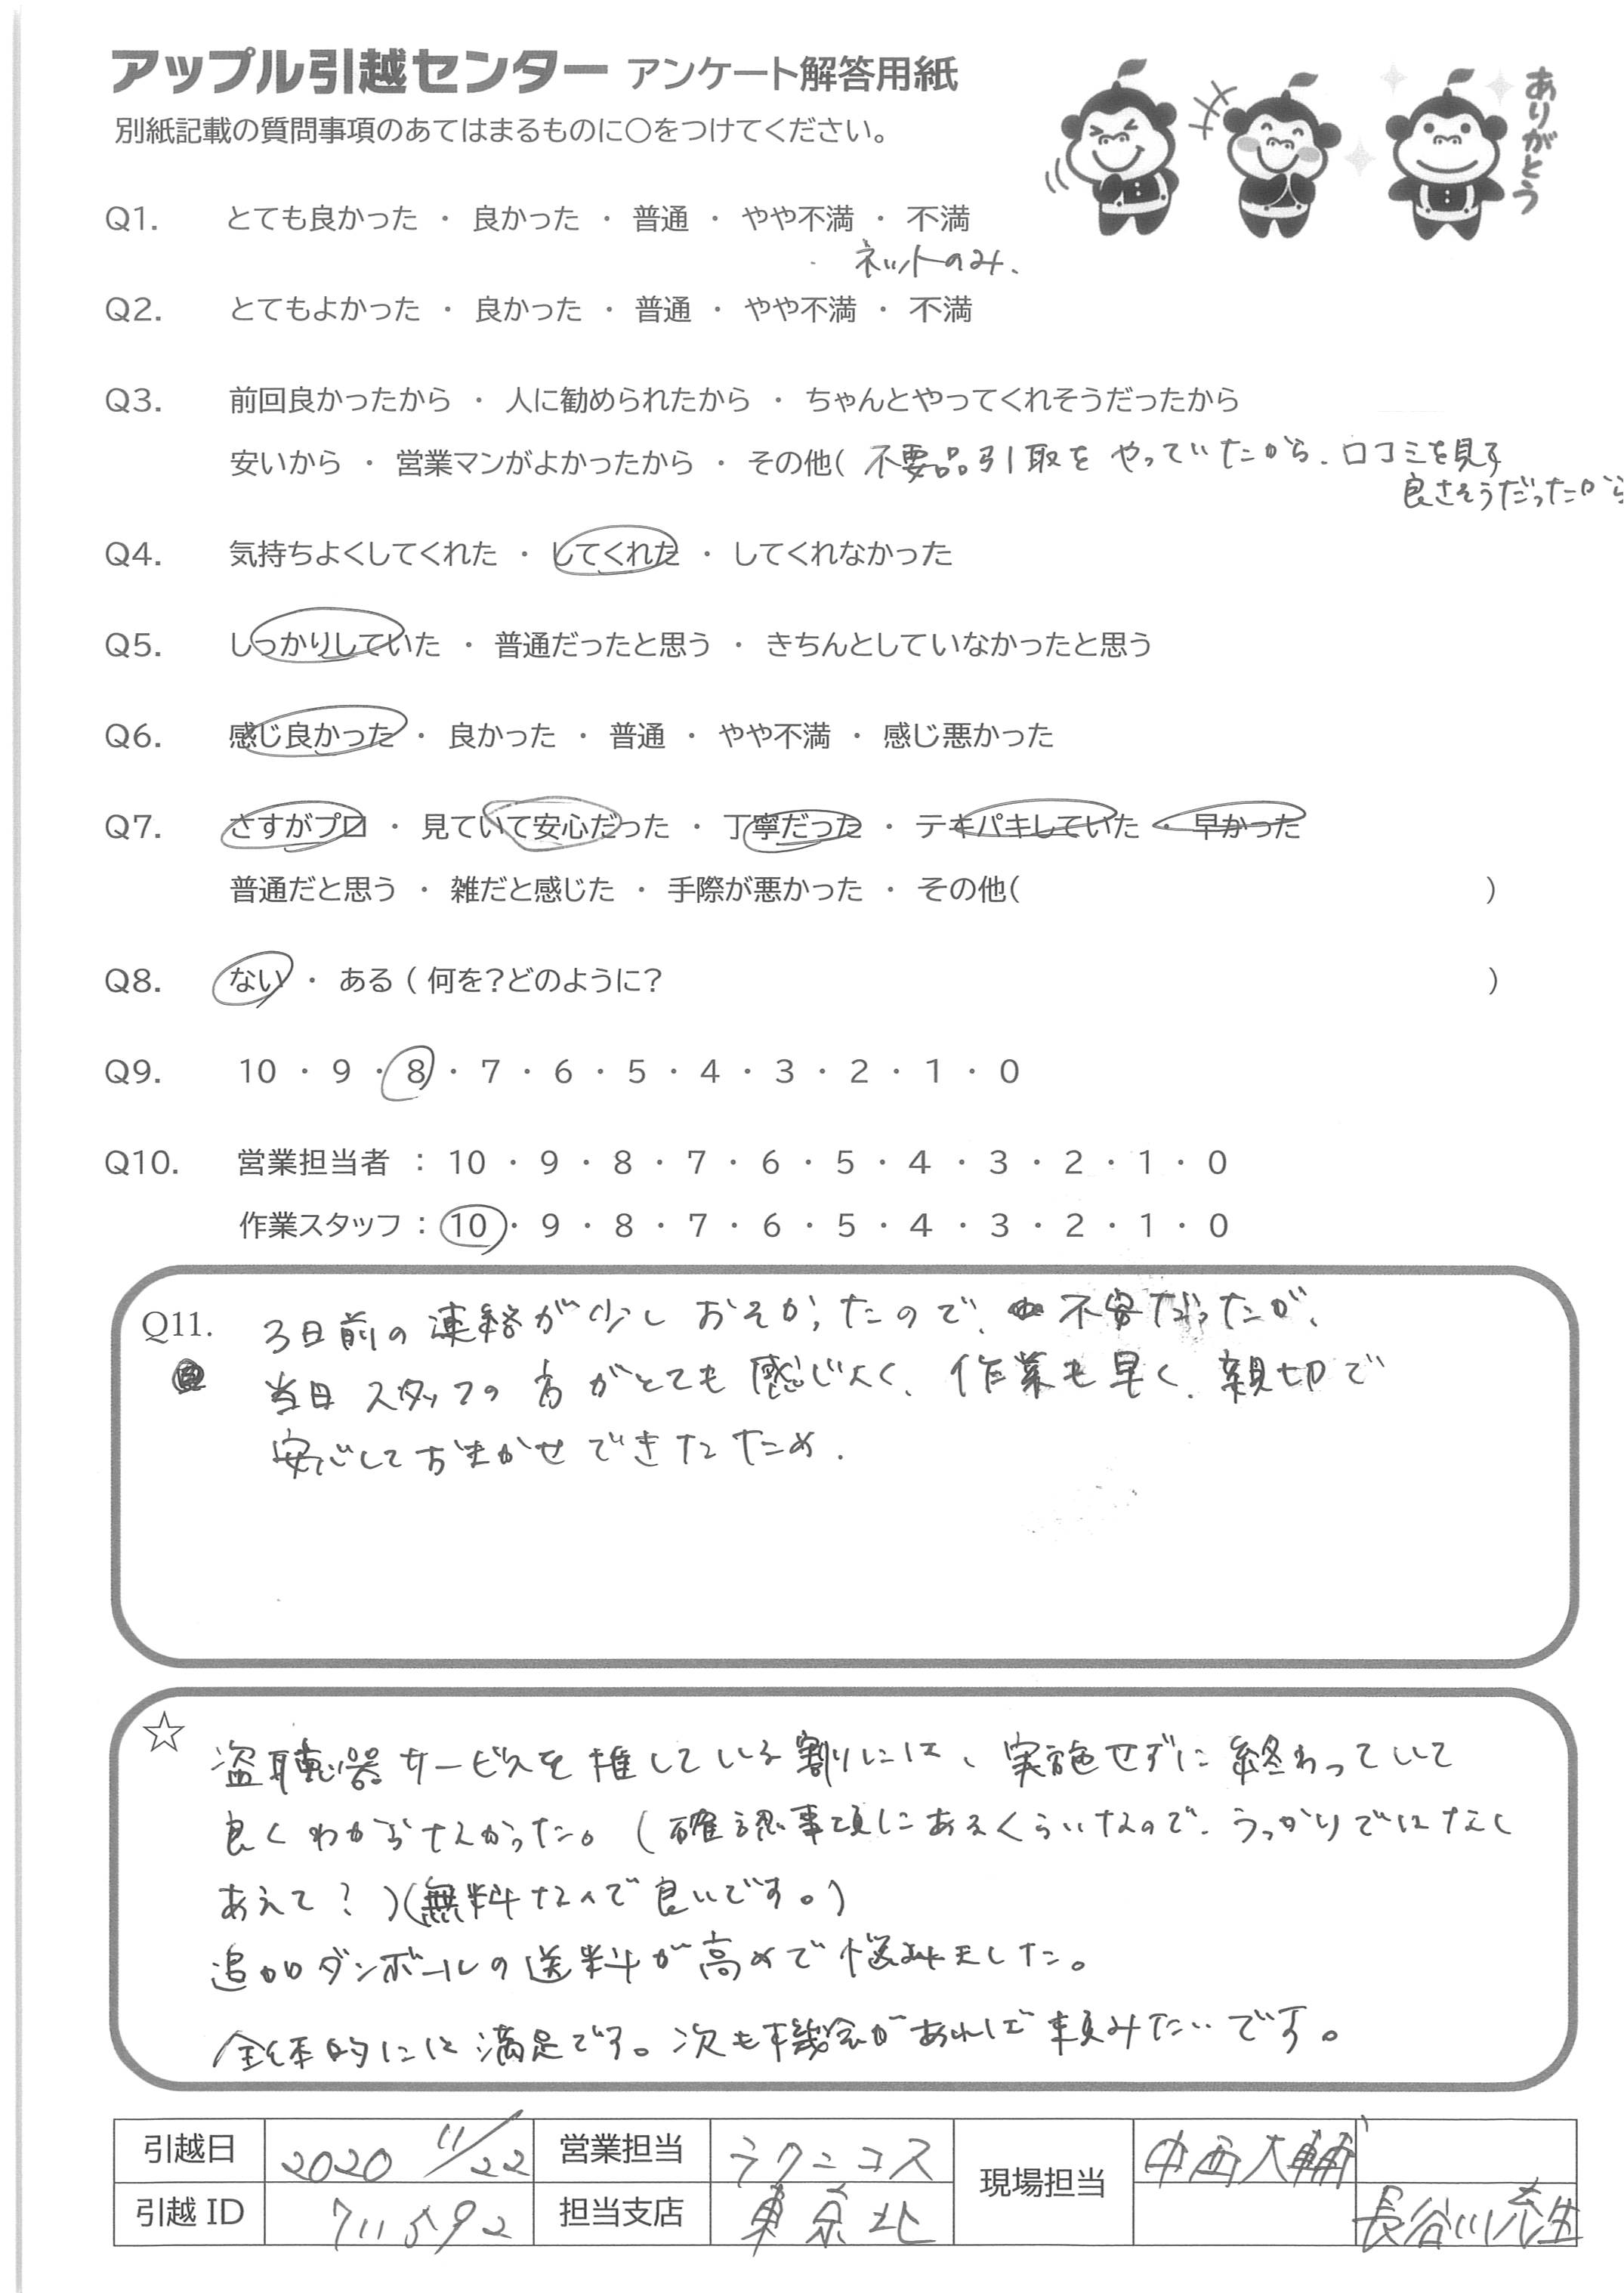 アップル引越センター アンケート解答用紙
別紙記載の質問事項のあてはまるものに〇をつけてください。
ありがとう
Q1. とても良かった ・ 良かった ・ 普通 ・ やや不満 ・ 不満
ネットのみ.
Q2. とてもよかった ・ 良かった ・ 普通 ・ やや不満 ・ 不満
Q3. 前回良かったから ・ 人に勧められたから ・ ちゃんとやってくれそうだったから
安いから ・ 営業マンがよかったから ・ その他( 不要品引取をやっていたから. 口コミを見て
良さそうだったから
Q4. 気持ちよくしてくれた ・ してくれた ・ してくれなかった
Q5. しっかりしていた ・ 普通だったと思う ・ きちんとしていなかったと思う
Q6. 感じ良かった ・ 良かった ・ 普通 ・ やや不満 ・ 感じ悪かった
Q7. さすがプロ ・ 見ていて安心だった ・ 丁寧だった ・ テキパキしていた ・ 早かった
普通だと思う ・ 雑だと感じた ・ 手際が悪かった ・ その他( )
Q8. ない ・ ある ( 何を?どのように? )
Q9. 10 ・ 9 ・ 8 ・ 7 ・ 6 ・ 5 ・ 4 ・ 3 ・ 2 ・ 1 ・ 0
Q10. 営業担当者 : 10 ・ 9 ・ 8 ・ 7 ・ 6 ・ 5 ・ 4 ・ 3 ・ 2 ・ 1 ・ 0
作業スタッフ : 10 ・ 9 ・ 8 ・ 7 ・ 6 ・ 5 ・ 4 ・ 3 ・ 2 ・ 1 ・ 0
Q11. 3日前の連絡が少しおそかったので、不安だったが、
当日スタッフの方がとても感じよく、作業も早く、親切で
安心しておまかせできたため.
☆ 盗聴器サービスを推している割りには、実施せずに終わっていて
良くわからなかった。(確認事項にあるくらいなので、うっかりではなく
あえて?)(無料なんで良いです。)
追加ダンボールの送料が高めで悩みました。
全体的には満足です。次も機会があれば頼みたいです。
引越日 2020 11/22 営業担当 ラクニコス 現場担当 中西大輔
引越 ID 711592 担当支店 東京北 長谷川